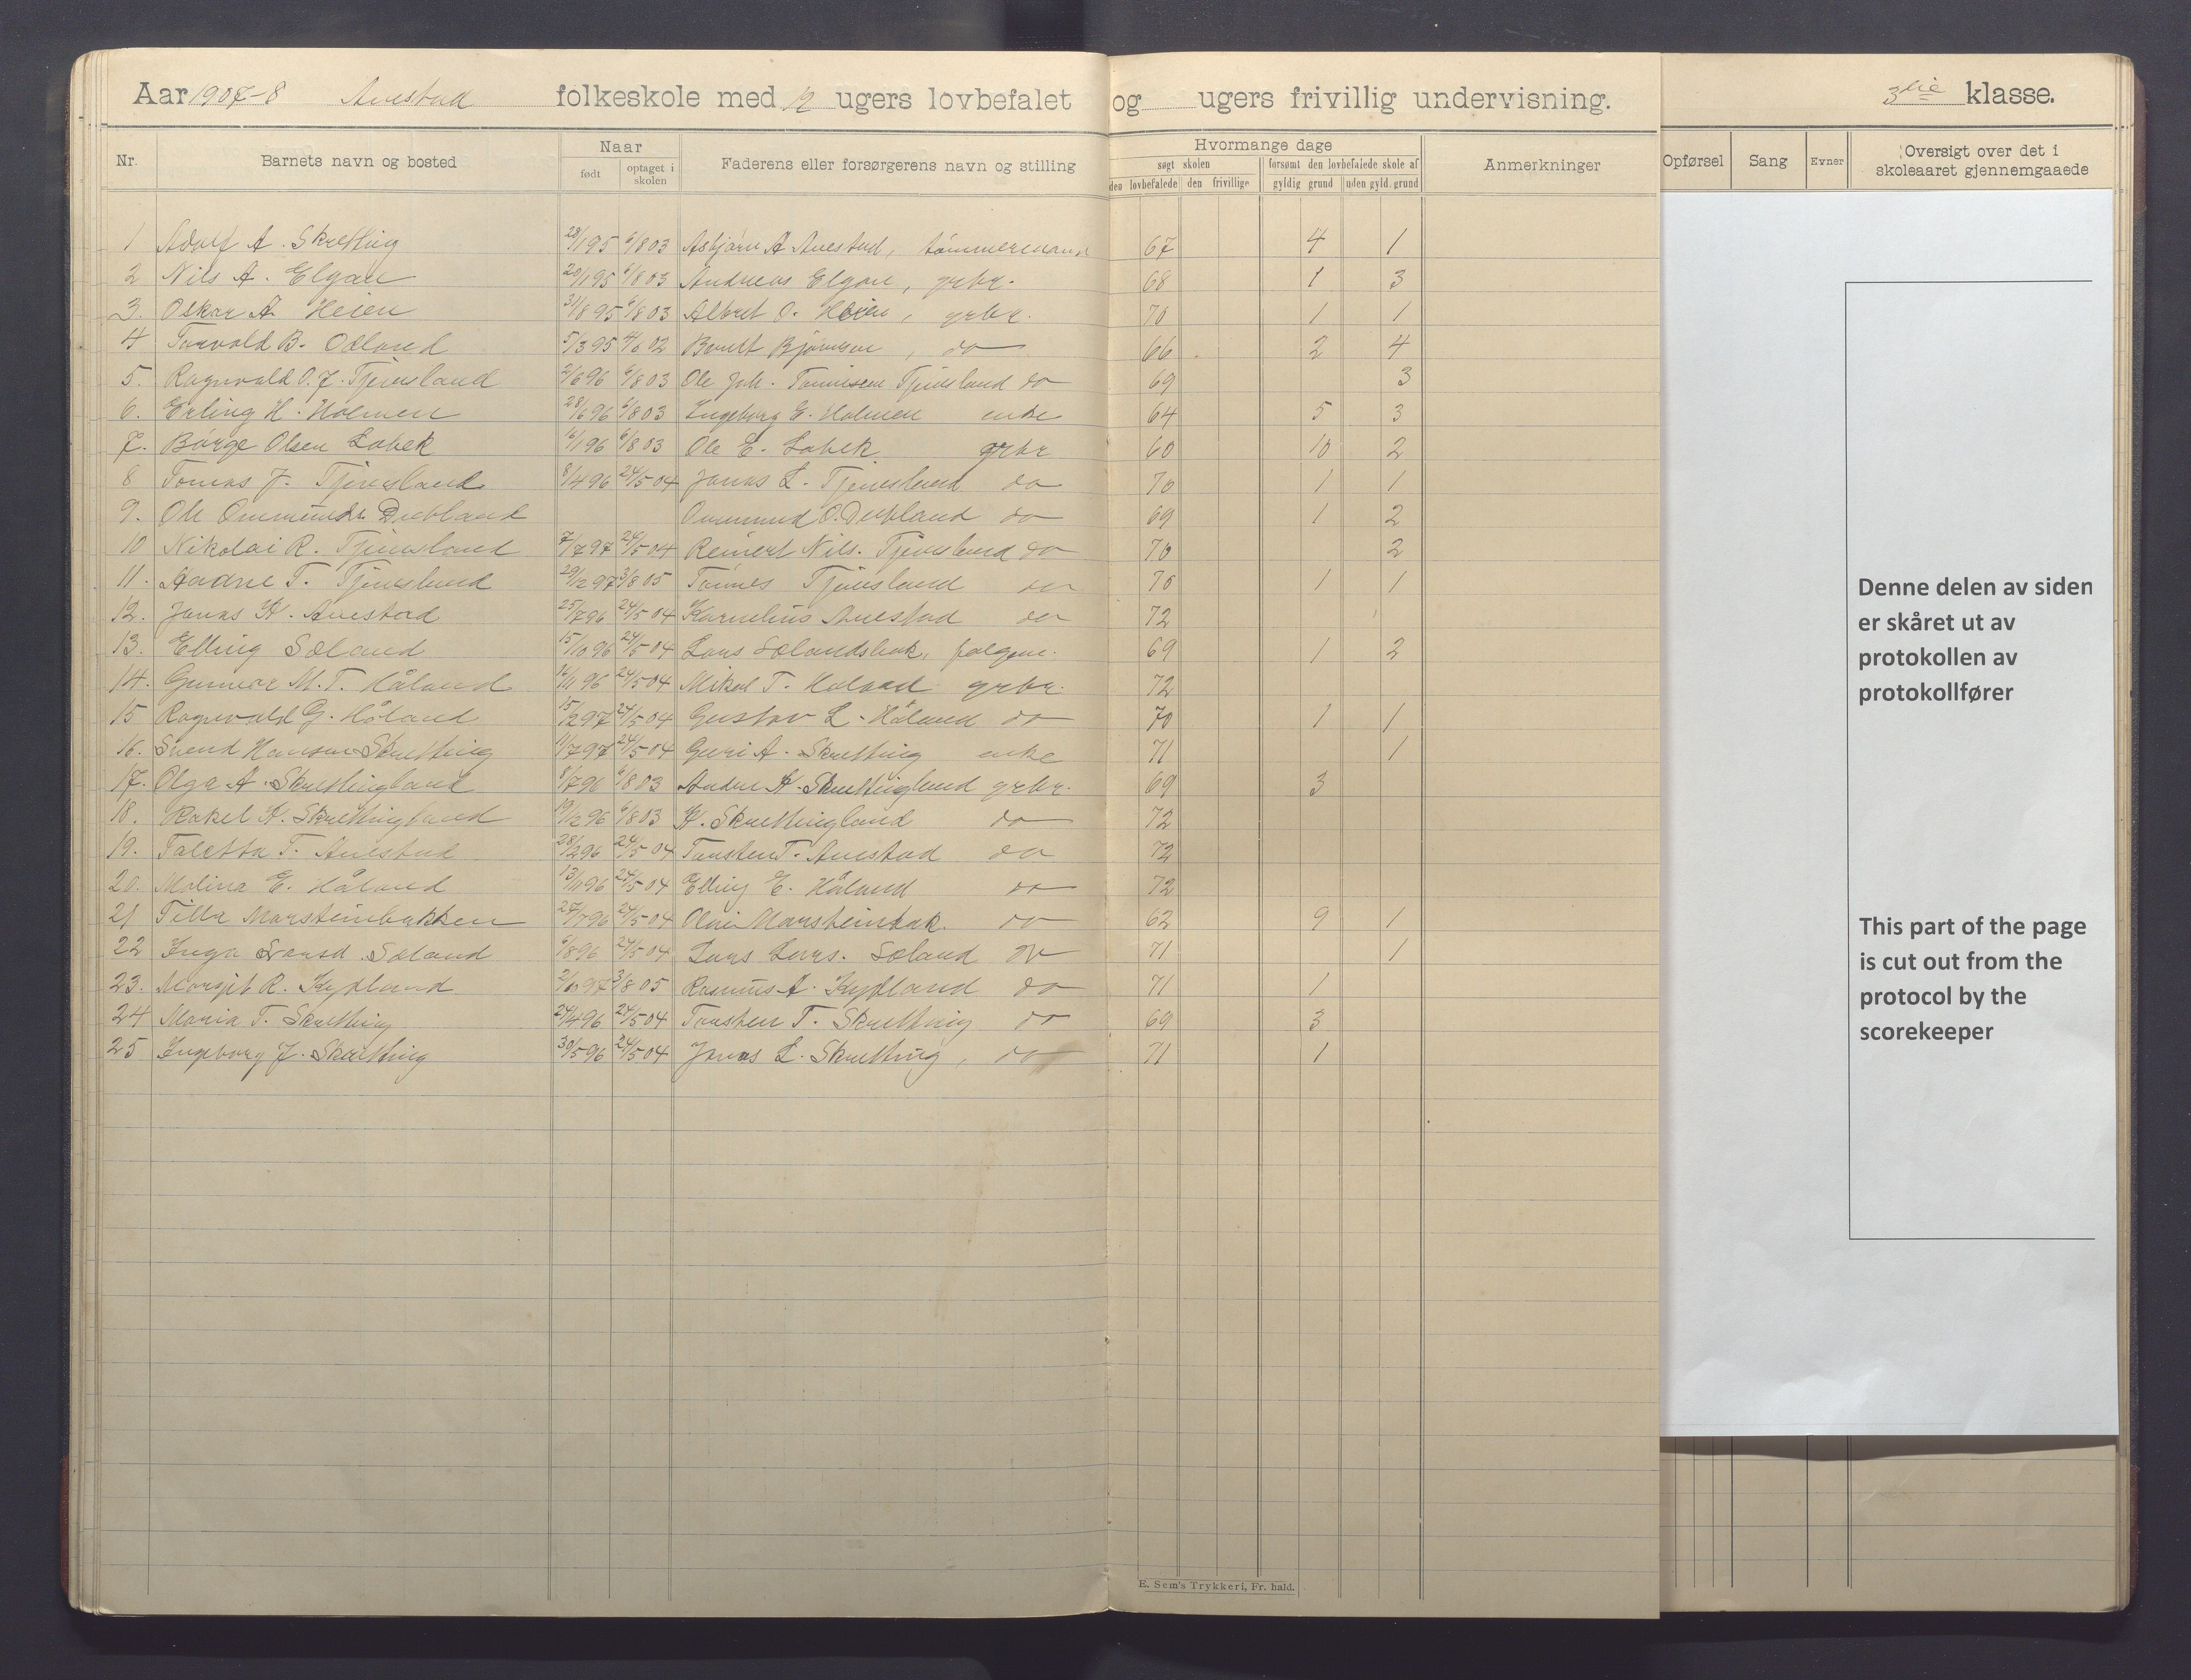 Aar 1907-8 Auestad folkeskole med 12 ugers lovbefalet og ugers frivillig undervisning. 3die klasse.
Nr. Barnets navn og bosted Naar født optaget i skolen Faderens eller forsørgerens navn og stilling Hvormange dage søgt skolen den lovbefalede den frivillige forsømt den lovbefalede skole af gyldig grund uden gyld. grund Anmerkninger Opførsel Sang Evner Oversigt over det i skoleaaret gjennemgaaede
1 Adolf A. Skretting 28/1 95 6/8 03 Asbjørn A Auestad, tømmermand 67 4 1
2 Nils A. Elgan 20/1 95 6/8 03 Andreas Elgan, grbr. 68 1 3
3. Oskar A. Heien 31/8 95 6/8 03 Albret O. Heien, grbr. 70 1 1
4 Torvald B. Odland 5/3 95 4/6 02 Berndt Bjørnsen, do 66 2 4
5. Ragnvald O. J. Tjensland 2/6 96 6/8 03 Ole Joh. Tønnesen Tjensland do 69 3
6. Erling H. Holmen 28/6 96 6/8 03 Ingeborg E. Holmen enke 64 5 3
7. Børge Olsen Lobek 16/1 96 6/8 03 Ole E. Lobek grbr 60 10 2
8 Tomas J. Tjensland 8/4 96 24/5 04 Jonas L. Tjensland do 70 1 1
9. Ole Ommunds. Dubland Ommund O. Dubland do 69 1 2
10 Nikolai R. Tjensland 7/7 97 24/5 04 Reinert Nils. Tjensland do 70 2
11. Aadne T. Tjensland 29/12 97 3/8 05 Tønnes Tjensland do 70 1 1
12. Jonas K. Auestad 25/7 96 24/5 04 Kornelius Auestad do 72
13. Elling Søland 15/10 96 24/5 04 Lars Sølandsbak, 69 1 2
14. Gunnar M. T. Håland 16/11 96 24/5 04 Mikal T. Håland grbr. 72
15 Ragnvald G. Håland 15/2 97 24/5 04 Gustav L. Håland do 70 1 1
16. Svend Hansen Skretting 11/7 97 24/5 04 Guri A. Skretting enke 71 1
17. Olga A. Skrettingland 8/7 96 6/8 03 Andre K. Skrettingland grbr. 69 3
18. Rakel K. Skrettingland 19/12 96 6/8 03 K. Skrettingland do 72
19. Taletta T. Auestad 28/2 96 24/5 04 Torsten T. Auestad do 72
20. Malina E. Håland 13/11 96 24/5 04 Elling E. Håland do 72
21 Tilla Marsteinbakken 27/7 96 24/5 04 Marsteinbak. do 62 9 1
22 Inga Larsd. Søland 6/8 96 24/5 04 Lars Lars. Søland do 71 1
23. Margit R. Kydland 2/10 97 3/8 05 Rasmus A. Kydland do 71 1
24 Maria T. Skretting 24/4 96 24/5 04 Torsten T. Skretting do 69 3
25 Ingeborg J. Skretting 30/5 96 24/5 04 Jonas L. Skretting, do 71 1
E. Sem's Trykkeri, Fr. hald.
Denne delen av siden
er skåret ut av
protokollen av
protokollfører
This part of the page
is cut out from the
protocol by the
scorekeeper